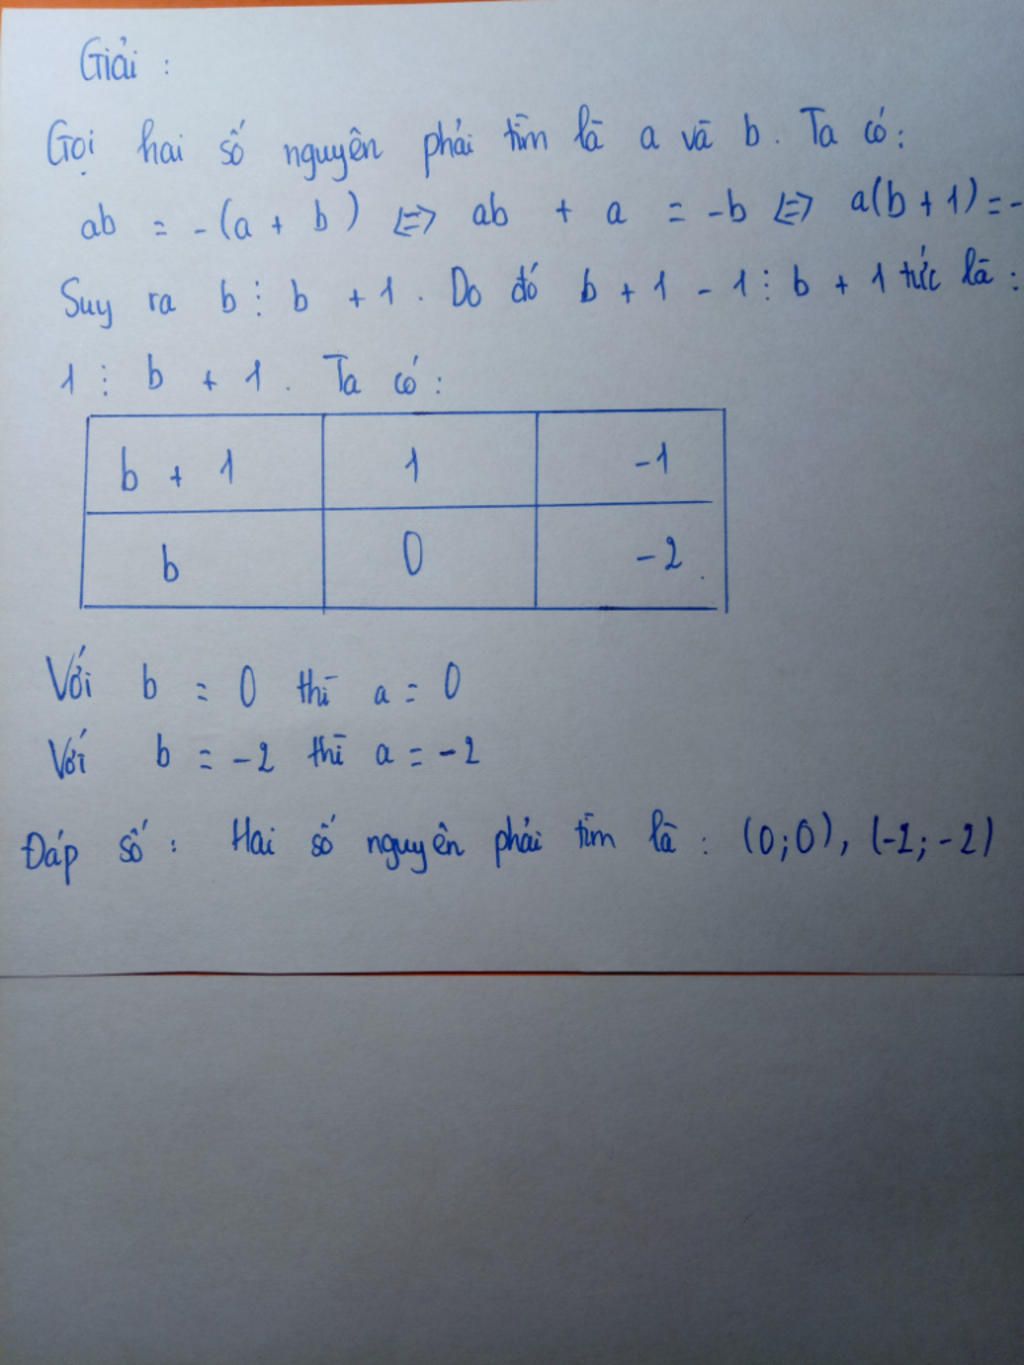 Giải :
Gọi hai số nguyên phải tìm là a và b. Ta có:
ab = -(a + b) <=> ab + a = -b <=> a(b + 1) = -
Suy ra b ⋮ b + 1. Do đó b + 1 - 1 ⋮ b + 1 tức là :
1 ⋮ b + 1. Ta có:
b + 1 1 -1
b 0 -2
Với b = 0 thì a = 0
Với b = -2 thì a = -2
Đáp số : Hai số nguyên phải tìm là : (0;0), (-2; -2)